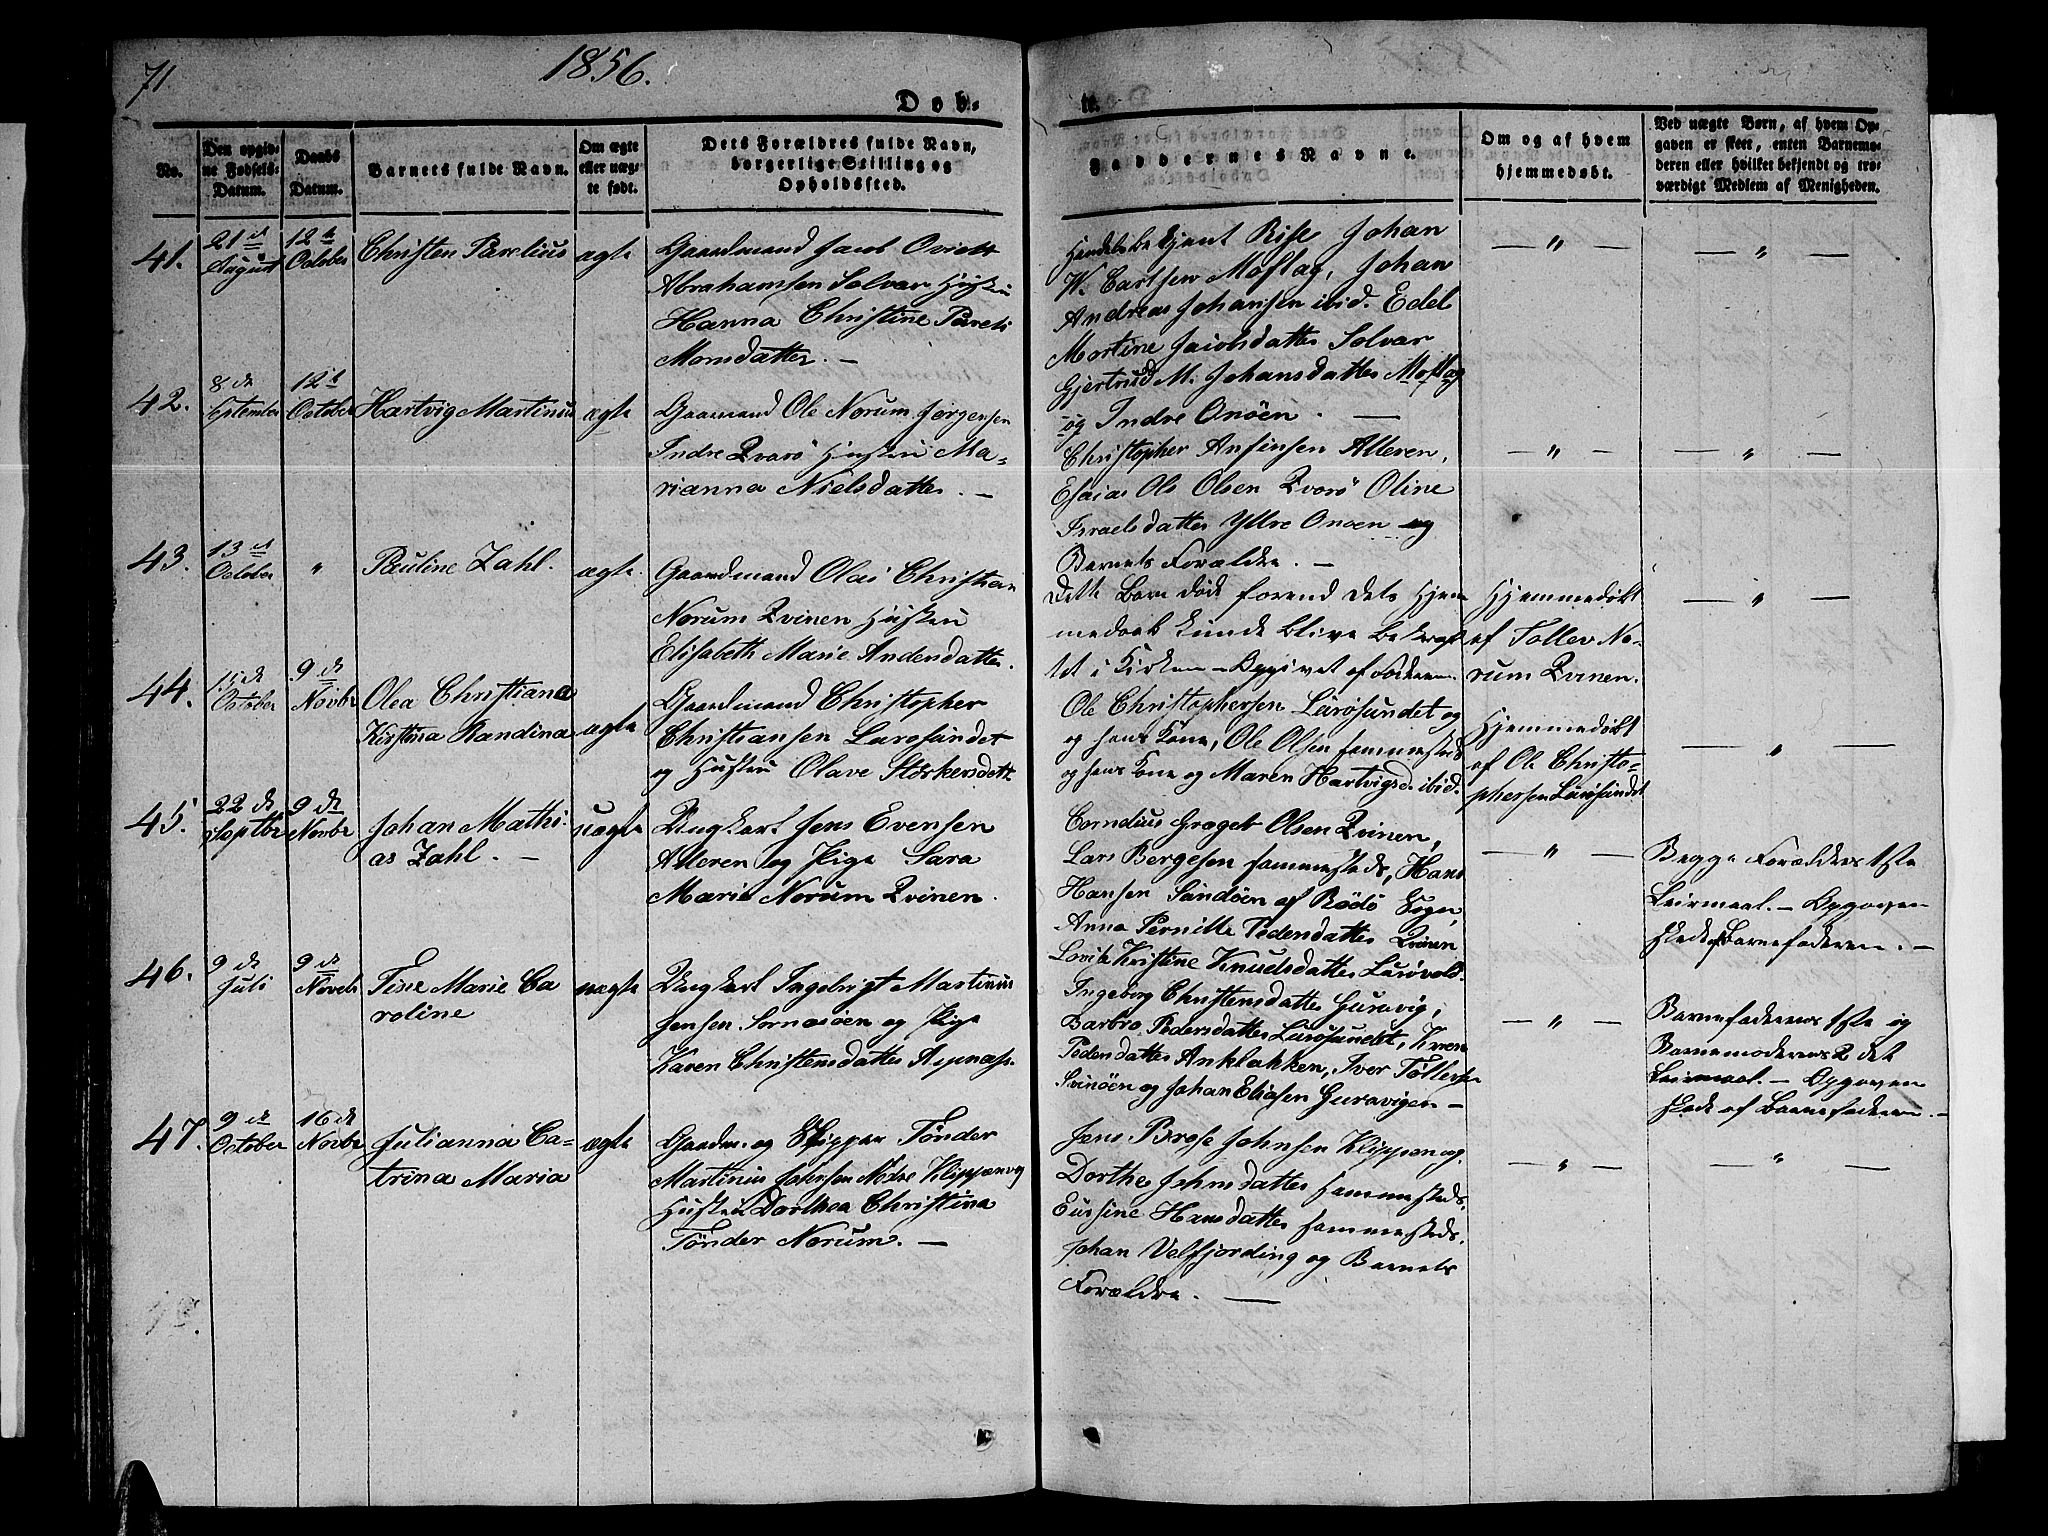 71.
1856.
Døb-
te.
No.
Den opgiv-
ne Fødsels-
Datum.
Daabs
Datum.
Barnets fulde Navn.
Om ægte
eller uæg-
te født.
Dets Forældres fulde Navn,
borgerlige Stilling og
Opholdssted.
Faddernes Navne.
Om og af hvem
hjemmedøbt.
Ved uægte Børn, af hvem Op-
gaven er skeet, enten Barnemo-
deren eller hvilket bekjendt og tro-
værdigt Medlem af Menigheden.
41.
21 d
August
12 t
October
Christen Parelius
ægte
Gaardmand Jacob
Abrahamsen Solvær Hustru
Hanna Christine Pareli
Monsdatter. —
Rise Johan
W. Carlsen Moflag, Johan
Andreas Johansen ibid. Edel
Martine Jacobsdatter Solvær
Gjertrud M. Johansdatter Moflag
og Indre Onøen. —
— " —
— " —
42.
8 de
September
12 t
October
Hartvig Martinus
ægte
Gaardmand Ole Norum Jørgensen
Indre Qvarø Hustru Ma-
rianna Nielsdatter. —
Christopher Ansinsen Alteren,
Esaias Ols Olsen Qvarø Oline
Israelsdatter Yttre Onøen og
Barnets Forældre. —
— " —
— " —
43.
13 d
October
"
Pauline Zahl.
ægte.
Gaardmand Olai Christian
Norum Qvinen Hustru
Elisabeth Marie Andersdatter.
Dette Barn døde forend dets Hjem
medaab kunde blive bekræf
tet i Kirken — Opgivet af Faderen.
Hjemmedøbt
af Tollev No-
rum Qvinen.
— " —
44.
15 de
October
9 de
Novbr
Olea Christiana
Kirstina Randina
ægte
Gaardmand Christopher
Christiansen Lurøsundet
og Hustru Olave Størkersdatt.
Ole Christophersen Lurøsundet og
og hans Kone, Ole Olsen sammesteds
og hans Kone og Maren Hartvigsd. ibid.
Hjemmedøbt
af Ole Christo-
phersen Lurøsundet
— " —
45.
22 de
Septbr
9 de
Novbr
Johan Mathi-
as Zahl. —
uægte
Ungkarl Jens Evensen
Alteren og Pige Sara
Marie Norum Qvinen.
Cornelius Olsen Qvinen,
Lars Bergesen sammesteds, Hans
Hansen Sandøen af Rødø Sogn,
Anna Pernille Pedersdatter Qvinen
Lovise Kristine Knudsdatter Lurøvold.
— " —
Begge Forældres 1ste
Leirmaal. — Opgaven
skede af Barnefaderen. —
46.
9 de
Juli
9 de
Novbr
Tine Marie Ca
roline
uægte
Ungkarl Ingebrigt Martinus
Jensen Sørnæsøen og Pige
Karen Christensdatter
Ingeborg Christensdatter Guravig,
Barbro Pedersdatter Lurøsundet, Karen
Pedersdatter Anklakken, Iver Tollefsen
Svinøen og Johan Eliasen Guravigen —
— " —
Barnefaderens 1ste og
Barnemoderens 2 det
Leirmaal. — Opgaven
skede af Barnefaderen. —
47.
9 de
October
16 de
Novbr
Julianna Ca-
trina Maria
ægte
Gaardm. og Skipper Tønder
Martinus Johnsen Nedre Klippen og
Hustru Dorthea Christina
Tønder Norum. —
Jens Brose Johnsen Klippen og
Dorthe Johnsdatter sammesteds,
Eusine Hansdatter sammesteds,
Johan Velfjording og Barnets
Forældre. —
— " —
— " —